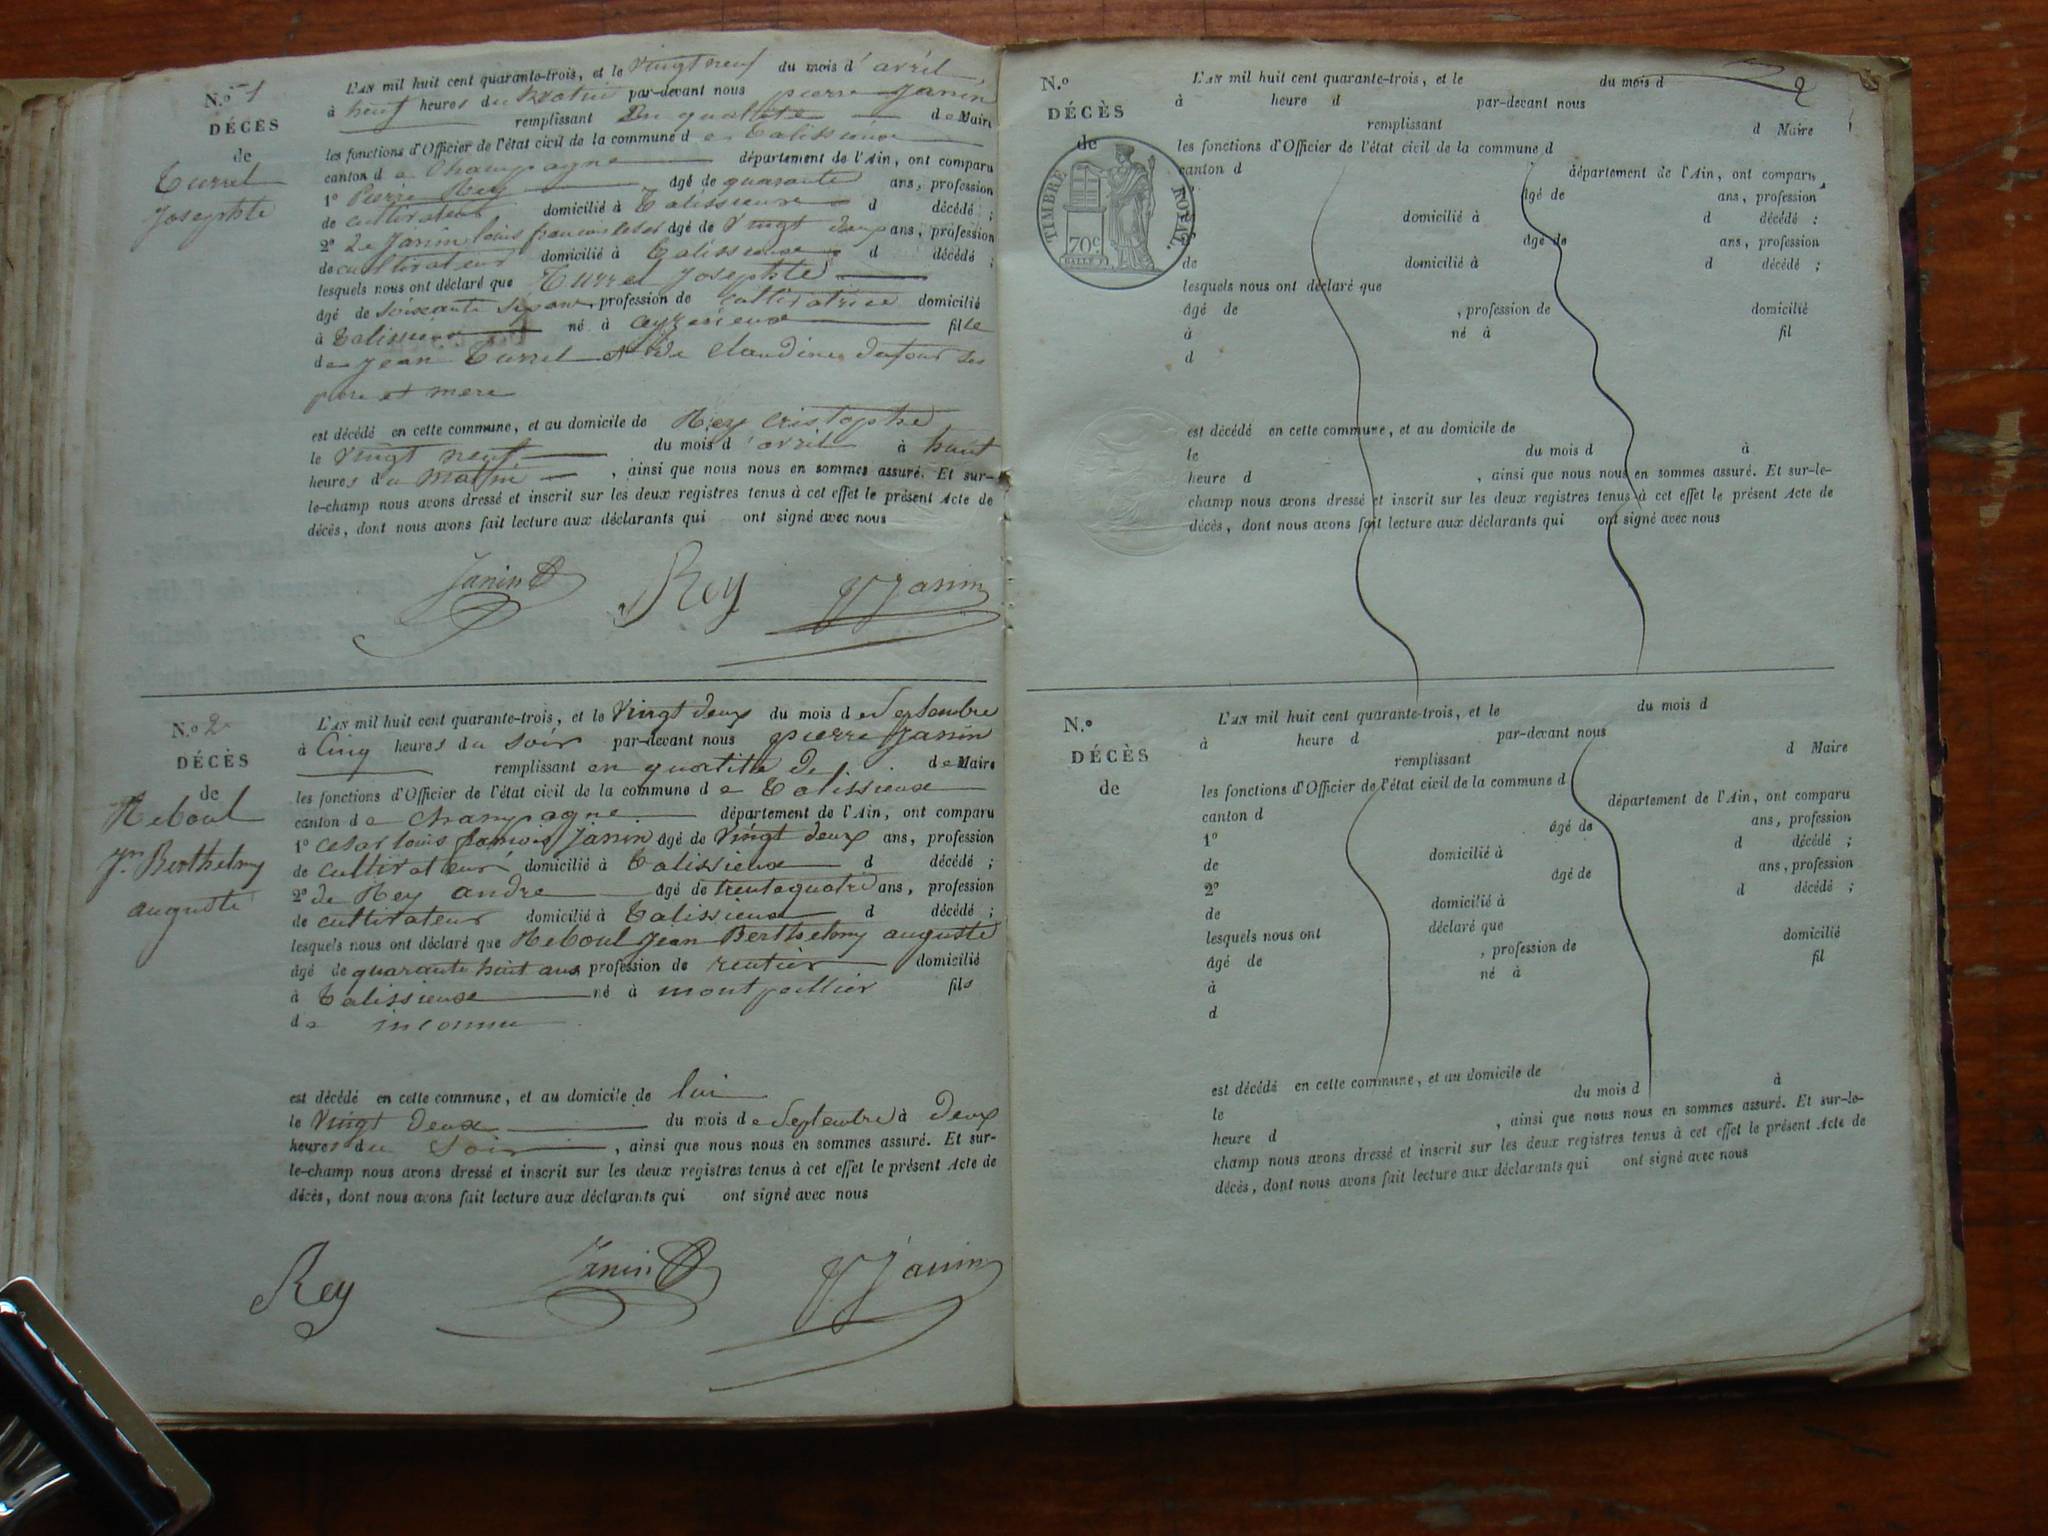 N.o 1
DÉCÈS
de
Turrel
Josephte
L'AN mil huit cent quarante-trois, et le vingt neuf du mois d'avril
à neuf heures du Matin par-devant nous pierre Janin
remplissant En qualité de Maire
les fonctions d'Officier de l'état civil de la commune de Talissieux
canton de Champagne département de l'Ain, ont comparu
1o Pierre Rey âgé de quarante ans, profession
de cultivateur domicilié à Talissieux d décédé ;
2o de Janin louis francois âgé de vingt deux ans, profession
de cultivateur domicilié à Talissieux d décédé ;
lesquels nous ont déclaré que Turrel Josephte
âgé de soixante six ans, profession de cultivatrice domicilié
à Talissieux né à ceyzerieux fille
de jean Turrel et de claudine dufour ses
père et mere
est décédé en cette commune, et au domicile de Rey cristophe
le vingt neuf du mois d'avril à huit
heures du mattin, ainsi que nous nous en sommes assuré. Et sur-
le-champ nous avons dressé et inscrit sur les deux registres tenus à cet effet le présent Acte de
décès, dont nous avons fait lecture aux déclarants qui ont signé avec nous
Janin Rey Janin
N.o 2
DÉCÈS
de
Reboul
Jn Berthelmy
auguste
L'AN mil huit cent quarante-trois, et le vingt deux du mois de Septembre
à Cinq heures du soir par-devant nous pierre Janin
remplissant en qualité de de Maire
les fonctions d'Officier de l'état civil de la commune de Talissieux
canton de champagne département de l'Ain, ont comparu
1o cesar louis francois Janin âgé de vingt deux ans, profession
de cultivateur domicilié à Talissieux d décédé ;
2o de Rey andre âgé de trentequatre ans, profession
de cultivateur domicilié à Talissieux d décédé ;
lesquels nous ont déclaré que Reboul jean Berthelmy auguste
âgé de quarante huit ans profession de rentier domicilié
à Talissieux né à montpellier fils
de inconnu
est décédé en cette commune, et au domicile de lui
le vingt deux du mois de Septembre à deux
heures du soir, ainsi que nous nous en sommes assuré. Et sur-
le-champ nous avons dressé et inscrit sur les deux registres tenus à cet effet le présent Acte de
décès, dont nous avons fait lecture aux déclarants qui ont signé avec nous
Rey Janin Janin
2
N.o
DÉCÈS
de
TIMBRE ROYAL.
70c
L'AN mil huit cent quarante-trois, et le du mois d
à heure d par-devant nous
remplissant d Maire
les fonctions d'Officier de l'état civil de la commune d
canton d département de l'Ain, ont comparu
âgé de ans, profession
domicilié à d décédé :
âgé de ans, profession
de domicilié à d décédé ;
lesquels nous ont déclaré que
âgé de , profession de domicilié
à né à fil
d
est décédé en cette commune, et au domicile de
le du mois d à
heure d , ainsi que nous nous en sommes assuré. Et sur-le-
champ nous avons dressé et inscrit sur les deux registres tenus à cet effet le présent Acte de
décès, dont nous avons fait lecture aux déclarants qui ont signé avec nous
N.o
DÉCÈS
de
L'AN mil huit cent quarante-trois, et le du mois d
à heure d par-devant nous
remplissant d Maire
les fonctions d'Officier de l'état civil de la commune d
canton d département de l'Ain, ont comparu
1o âgé de ans, profession
de domicilié à d décédé ;
2o âgé de ans, profession
de domicilié à d décédé ;
lesquels nous ont déclaré que
âgé de , profession de domicilié
à né à fil
d
est décédé en cette commune, et au domicile de
le du mois d à
heure d , ainsi que nous nous en sommes assuré. Et sur-le-
champ nous avons dressé et inscrit sur les deux registres tenus à cet effet le présent Acte de
décès, dont nous avons fait lecture aux déclarants qui ont signé avec nous